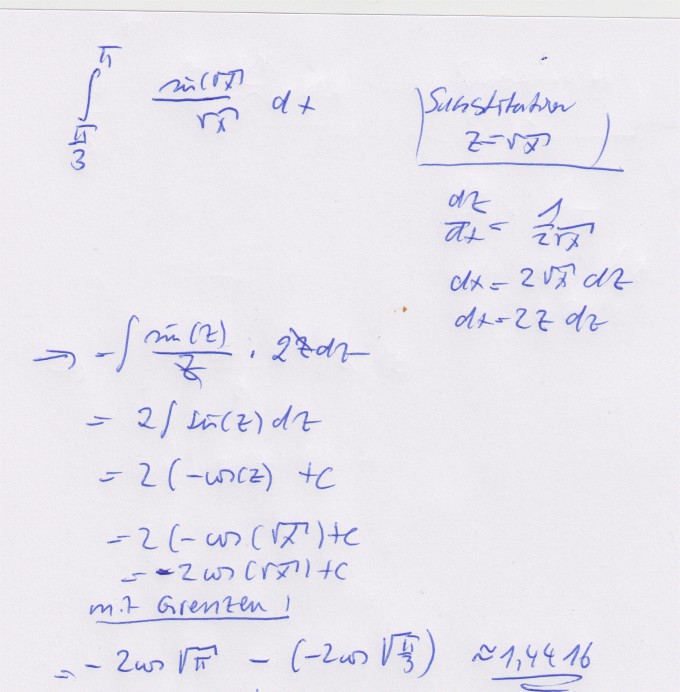 ∫_{π/3}^{π} sin(√x)/√x dx
(Substitution
z=√x)
dz/dx = 1/(2√x)
dx = 2√x dz
dx = 2z dz
⇒ = ∫ sin(z)/z · 2z dz
= 2∫ sin(z) dz
= 2(-cos(z) +c
= 2(-cos(√x)+c
= -2cos(√x)+c
mit Grenzen!
= -2cos √π - (-2cos √(π/3)) ≈ 1,4416